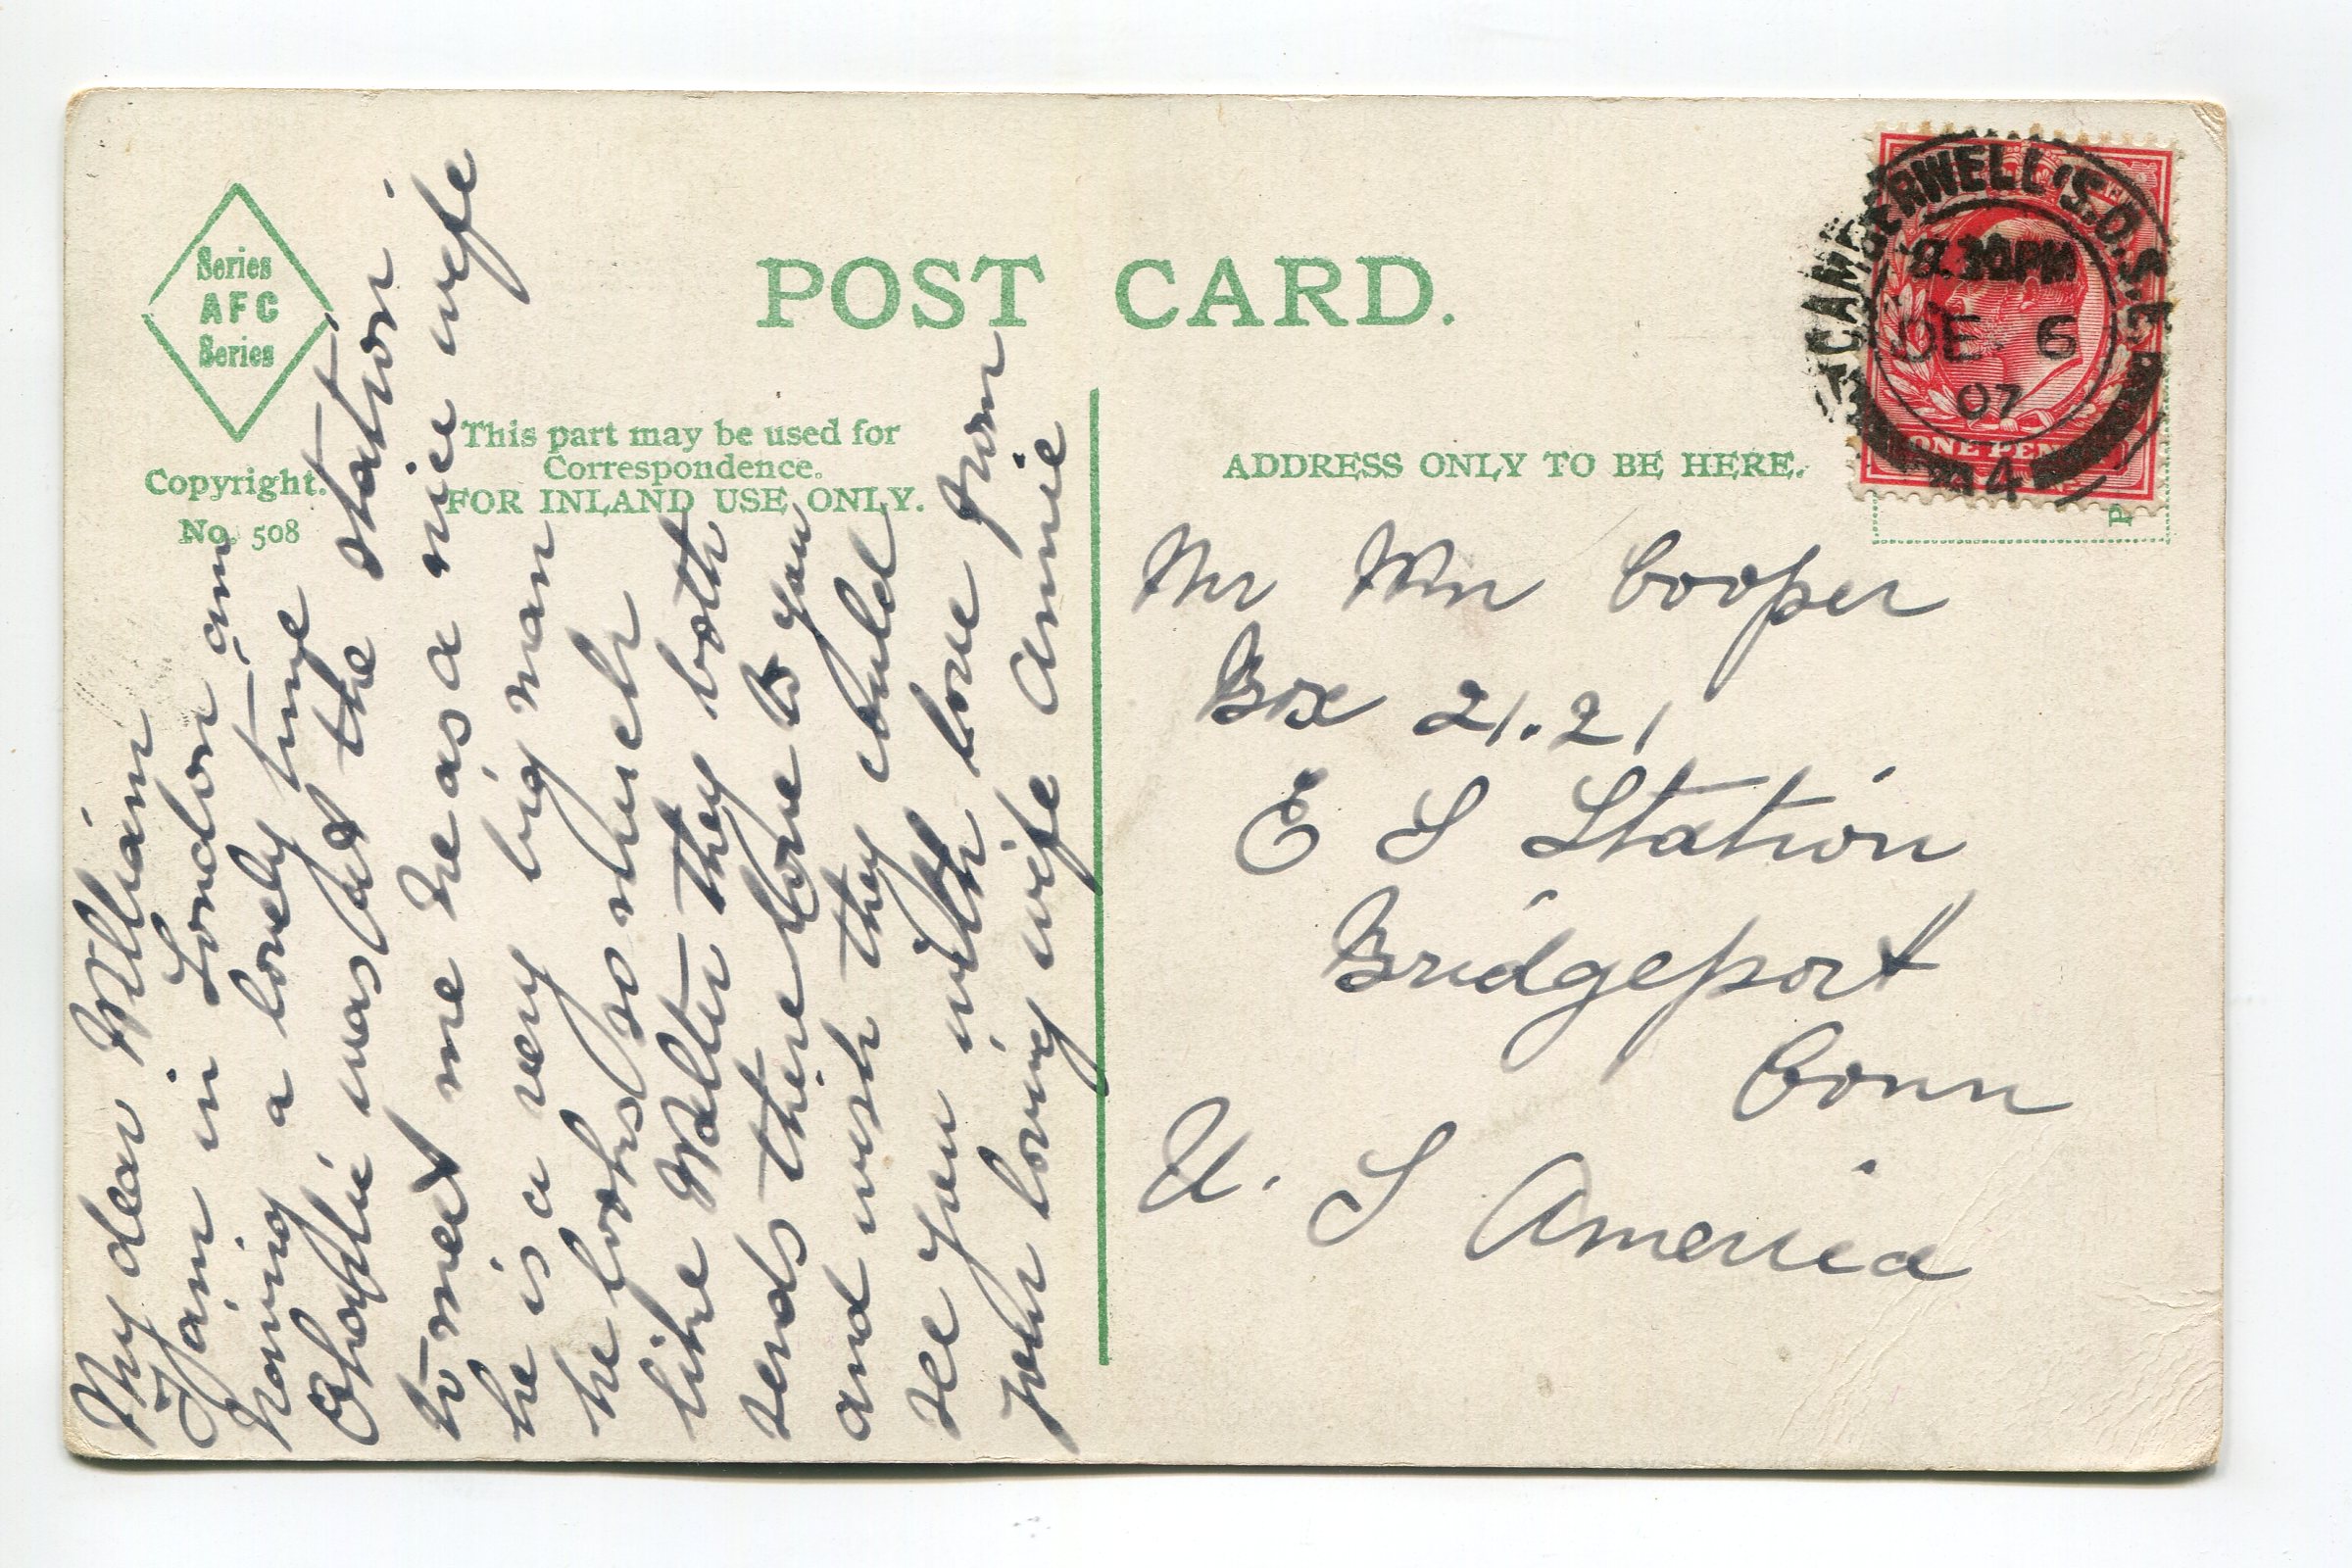 Series
AFC
Series
Copyright.
No. 508
POST CARD.
This part may be used for
Correspondence.
FOR INLAND USE ONLY.
ADDRESS ONLY TO BE HERE.
CAMBERWELL S.O. S.E.
.30PM
DE 6
07
ONE PEN
4
P
My dear William
I am in London am
having a lovely time
was at the station
to meet me he as a nice wife
he is a very big man
he looks so much
like Walter they both
sends there love to you
and wish they could
see you with love from
your loving wife Annie
Mr Wm Cooper
Box 21.21
E S Station
Bridgeport
Conn
U. S America